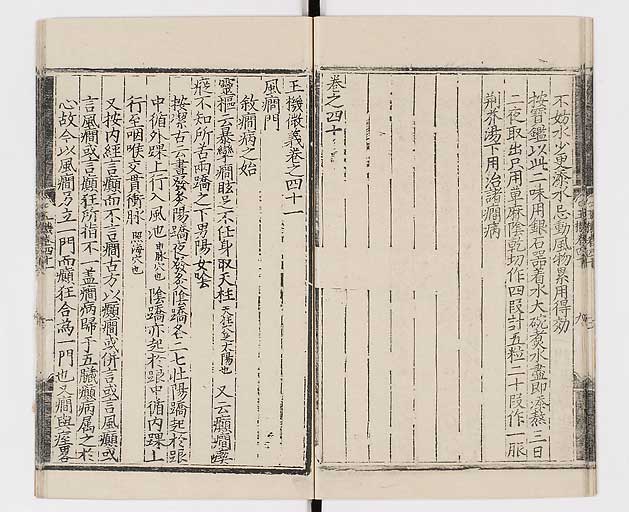 不妨水少更添水忌動風物累用得効
按寶鑑以此二味用銀石器着水大碗煮水盡即添熬三日
二夜取出只用草麻陰乾切作四段計五粒二十段作一服
荆芥湯下用治諸癎病
卷之四十
玉機微義卷之四十一
風癎門
敘癎病之始
靈樞云暴攣癎眩足不任身取天柱天柱穴足太陽也又云癲癎瘈
瘲不知所苦兩蹻之下男陽女陰
按潔古云晝發灸陽蹻夜發灸陰蹻各二七壯陽蹻起於跟
中循外踝上行入風池申脉穴也陰蹻亦起於跟中循内踝上
行至咽喉交貫衝脉照海穴也
又按内經言癲而不言癎古方以癲癎或併言或言風癲或
言風癎或言癲狂所指不一盖癎病歸于五臟癲病属之於
心故今以風癎乃立一門而癲狂合為一門也又癎與痓畧